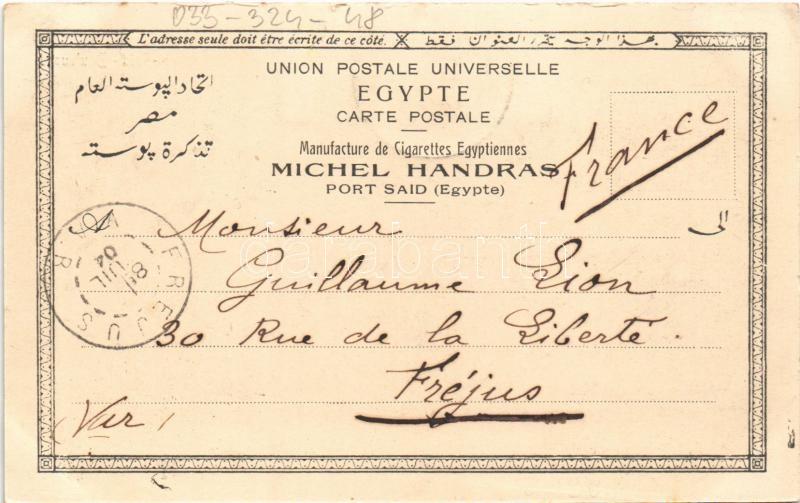 033-324-48
L'adresse seule doit être écrite de ce côté.
فقط
UNION POSTALE UNIVERSELLE
EGYPTE
CARTE POSTALE
اتحاد البوسته العام
مصر
تذكرة بوسته
Manufacture de Cigarettes Egyptiennes
MICHEL HANDRAS
PORT SAID (Egypte)
France
الى
A Monsieur
Guillaume Lion
30 Rue de la Liberté.
Fréjus
(Var)
FREJUS
VAR
8
JUIL
04
darabanth